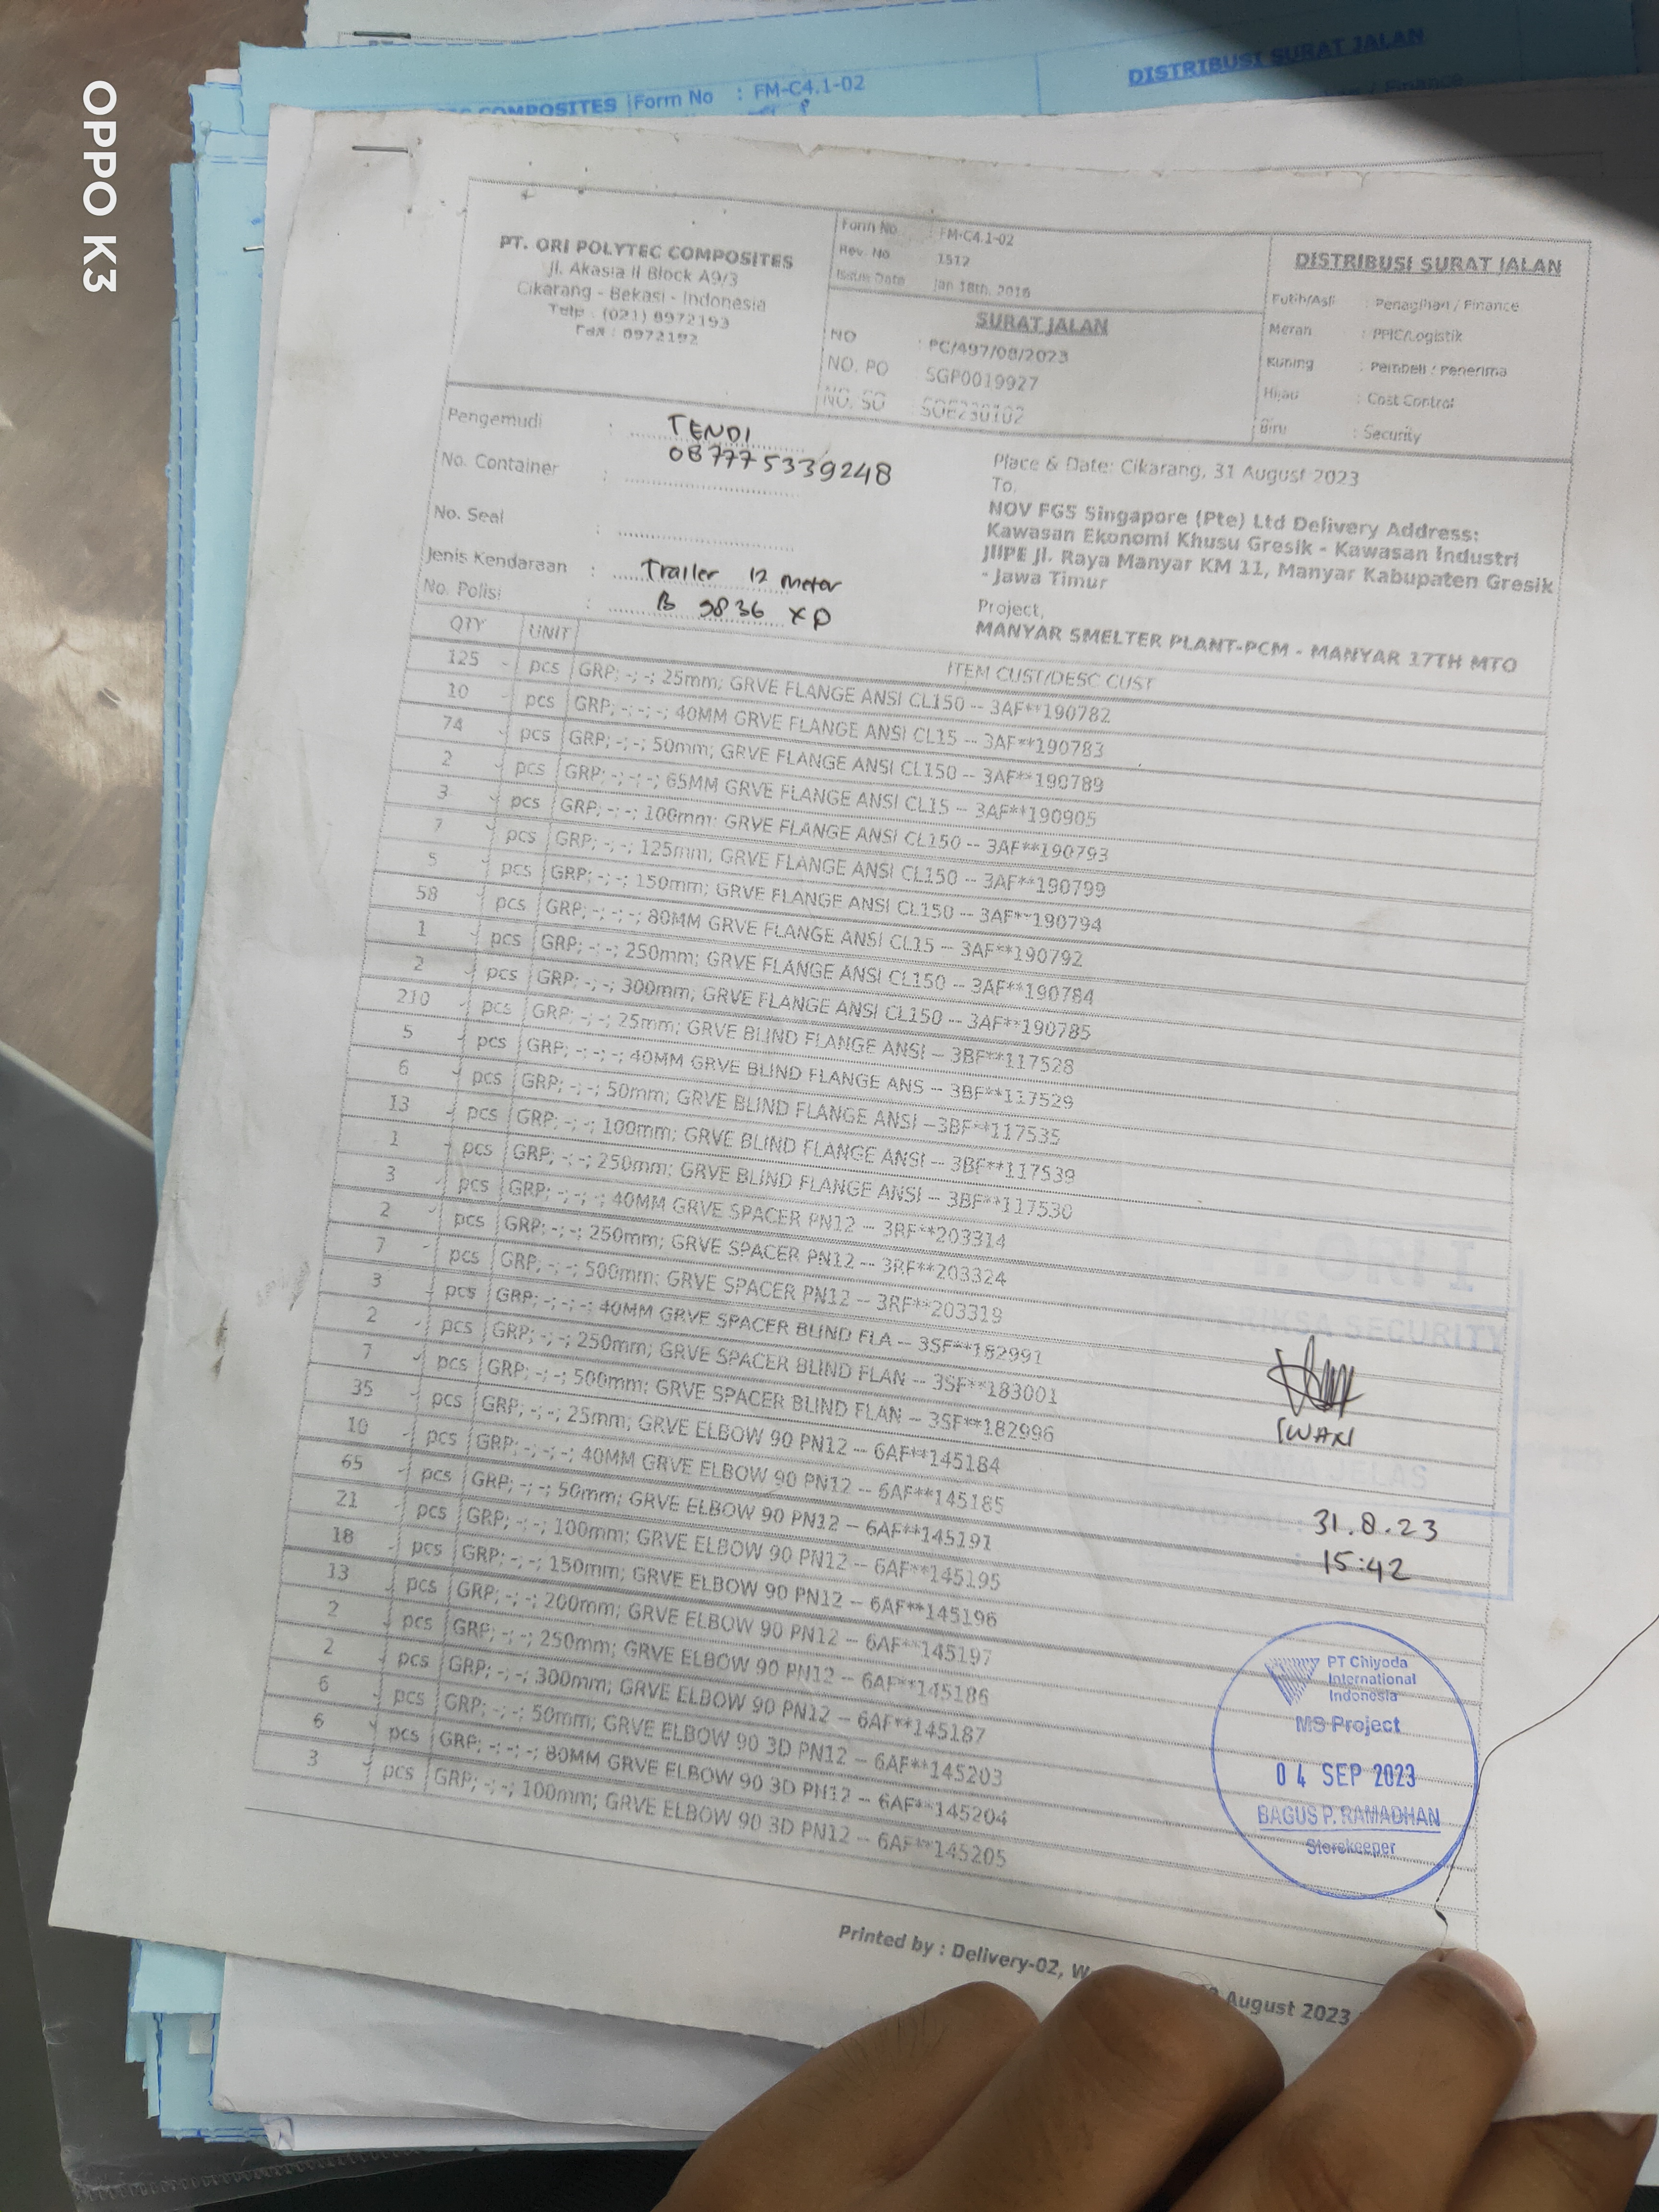 OPPO K3
COMPOSITES Form No : FM-C4.1-02
DISTRIBUSI SURAT JALAN
/ Finance
PT. ORI POLYTEC COMPOSITES
Jl. Akasia II Block A9/3
Cikarang - Bekasi - Indonesia
Telp : (021) 8972193
Fax : 8972192
Form No : FM-C4.1-02
Rev. No 1512
Issue Date Jan 18th, 2016
SURAT JALAN
NO : PC/497/08/2023
NO. PO SGP0019927
NO. SO : SOE230102
DISTRIBUSI SURAT JALAN
Putih/Asli : Penagihan / Finance
Merah : PPIC/Logistik
Kuning : Pembeli / Penerima
Hijau : Cost Control
Biru : Security
Pengemudi : TENDI
087775339248
No. Container :
No. Seal :
Jenis Kendaraan : Trailer 12 meter
No. Polisi : B 9836 XD
Place & Date: Cikarang, 31 August 2023
To,
NOV FGS Singapore (Pte) Ltd Delivery Address:
Kawasan Ekonomi Khusu Gresik - Kawasan Industri
JIIPE Jl. Raya Manyar KM 11, Manyar Kabupaten Gresik
- Jawa Timur
Project,
MANYAR SMELTER PLANT-PCM - MANYAR 17TH MTO
QTY UNIT ITEM CUST/DESC CUST
125 pcs GRP; -; -; 25mm; GRVE FLANGE ANSI CL150 -- 3AF**190782
10 pcs GRP; -; -; -; 40MM GRVE FLANGE ANSI CL15 -- 3AF**190783
74 pcs GRP; -; -; 50mm; GRVE FLANGE ANSI CL150 -- 3AF**190789
2 pcs GRP; -; -; -; 65MM GRVE FLANGE ANSI CL15 -- 3AF**190905
3 pcs GRP; -; -; 100mm; GRVE FLANGE ANSI CL150 -- 3AF**190793
7 pcs GRP; -; -; 125mm; GRVE FLANGE ANSI CL150 -- 3AF**190799
5 pcs GRP; -; -; 150mm; GRVE FLANGE ANSI CL150 -- 3AF**190794
58 pcs GRP; -; -; -; 80MM GRVE FLANGE ANSI CL15 -- 3AF**190792
1 pcs GRP; -; -; 250mm; GRVE FLANGE ANSI CL150 -- 3AF**190784
2 pcs GRP; -; -; 300mm; GRVE FLANGE ANSI CL150 -- 3AF**190785
210 pcs GRP; -; -; 25mm; GRVE BLIND FLANGE ANSI -- 3BF**117528
5 pcs GRP; -; -; -; 40MM GRVE BLIND FLANGE ANS -- 3BF**117529
6 pcs GRP; -; -; 50mm; GRVE BLIND FLANGE ANSI --3BF**117535
13 pcs GRP; -; -; 100mm; GRVE BLIND FLANGE ANSI -- 3BF**117539
1 pcs GRP; -; -; 250mm; GRVE BLIND FLANGE ANSI -- 3BF**117530
3 pcs GRP; -; -; -; 40MM GRVE SPACER PN12 -- 3RF**203314
2 pcs GRP; -; -; 250mm; GRVE SPACER PN12 -- 3RF**203324
7 pcs GRP; -; -; 500mm; GRVE SPACER PN12 -- 3RF**203319
3 pcs GRP; -; -; -; 40MM GRVE SPACER BLIND FLA -- 3SF**182991
2 pcs GRP; -; -; 250mm; GRVE SPACER BLIND FLAN -- 3SF**183001
7 pcs GRP; -; -; 500mm; GRVE SPACER BLIND FLAN -- 3SF**182996
35 pcs GRP; -; -; 25mm; GRVE ELBOW 90 PN12 -- 6AF**145184
10 pcs GRP; -; -; -; 40MM GRVE ELBOW 90 PN12 -- 6AF**145185
65 pcs GRP; -; -; 50mm; GRVE ELBOW 90 PN12 -- 6AF**145191
21 pcs GRP; -; -; 100mm; GRVE ELBOW 90 PN12 -- 6AF**145195
18 pcs GRP; -; -; 150mm; GRVE ELBOW 90 PN12 -- 6AF**145196
13 pcs GRP; -; -; 200mm; GRVE ELBOW 90 PN12 -- 6AF**145197
2 pcs GRP; -; -; 250mm; GRVE ELBOW 90 PN12 -- 6AF**145186
2 pcs GRP; -; -; 300mm; GRVE ELBOW 90 PN12 -- 6AF**145187
6 pcs GRP; -; -; 50mm; GRVE ELBOW 90 3D PN12 -- 6AF**145203
6 pcs GRP; -; -; -; 80MM GRVE ELBOW 90 3D PN12 -- 6AF**145204
3 pcs GRP; -; -; 100mm; GRVE ELBOW 90 3D PN12 -- 6AF**145205
SECURITY
IWAN
31.8.23
15:42
PT Chiyoda
International
Indonesia
MS Project
04 SEP 2023
BAGUS P. RAMADHAN
Storekeeper
Printed by : Delivery-02, August 2023